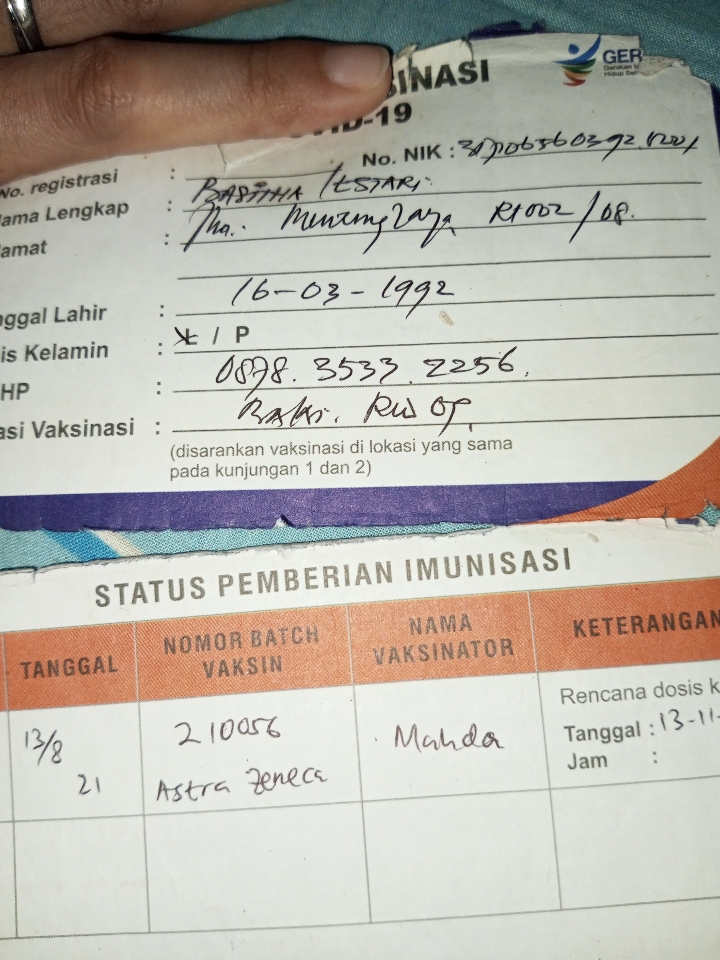 GER
SINASI
VID-19
No. NIK :
No. registrasi :
ama Lengkap :
amat :
RT002/08.
ggal Lahir : 16-03-1992
is Kelamin : L / P
HP : 0878.3533.2256.
asi Vaksinasi : RW 08
(disarankan vaksinasi di lokasi yang sama
pada kunjungan 1 dan 2)
STATUS PEMBERIAN IMUNISASI
TANGGAL NOMOR BATCH VAKSIN NAMA VAKSINATOR KETERANGAN
13/8 21 210056 Astra Zeneca Mahda
Rencana dosis k
Tanggal : 13-11-
Jam :